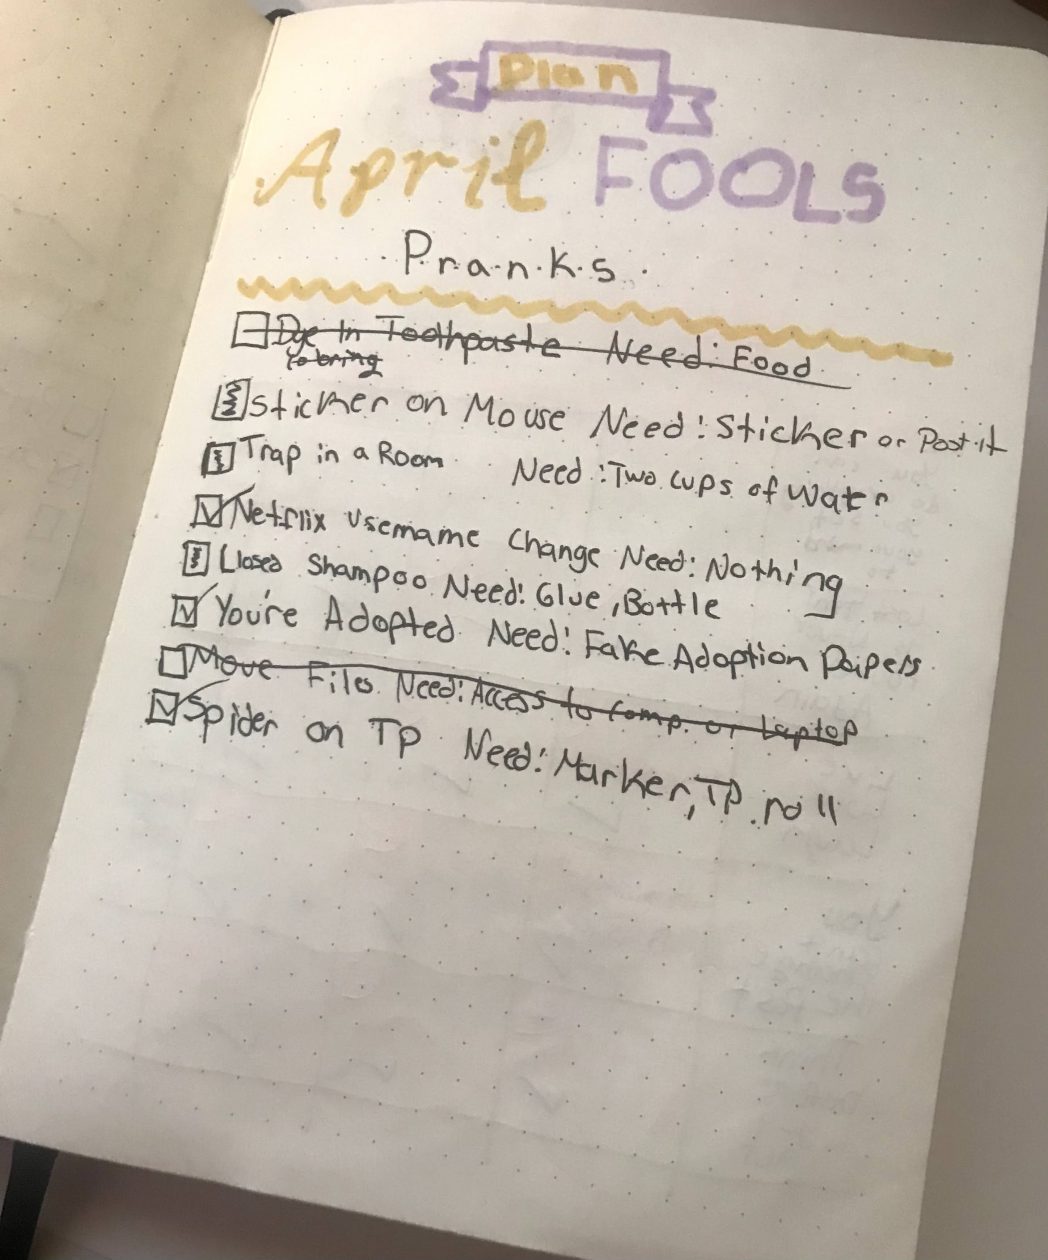 Plan
April FOOLS
Pranks
Dye In Toothpaste Need: Food
Coloring
Sticker on Mouse Need: Sticker or Post it
Trap in a Room Need: Two cups of Water
Netflix Username Change Need: Nothing
Closed Shampoo Need: Glue, Bottle
You're Adopted Need: Fake Adoption Paipers
Move Files Need: Access to Comp. or Laptop
Spider on TP Need: Marker, TP roll